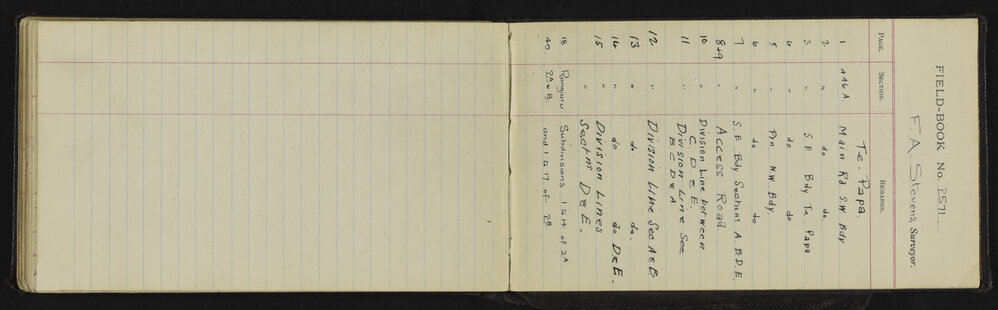 FIELD-BOOK No. 2571
F. A. Stevens, Surveyor.
PAGE. SECTION. REMARKS.
Te. Papa
1 446A Main Rd S.W. Bdy
2 " do do
3 " S.E. Bdy Te. Papa
4 " do do
5 " Ptn NW Bdy
6 " do do
7 " S.E. Bdy Sections A.B.D.E.
8+9 " Access Road
10 " Division Line between
C. D. & E.
11 " Division Line Sec
B C D & A
12 " Division Line Sec A & B
13 " do. do.
14 " do do D & E.
15 " Division Lines
" Sectns D & E.
18 Ranguru Subdivisions 1 to 14 of 2A
40 2A & B and 1 to 17 of 2B